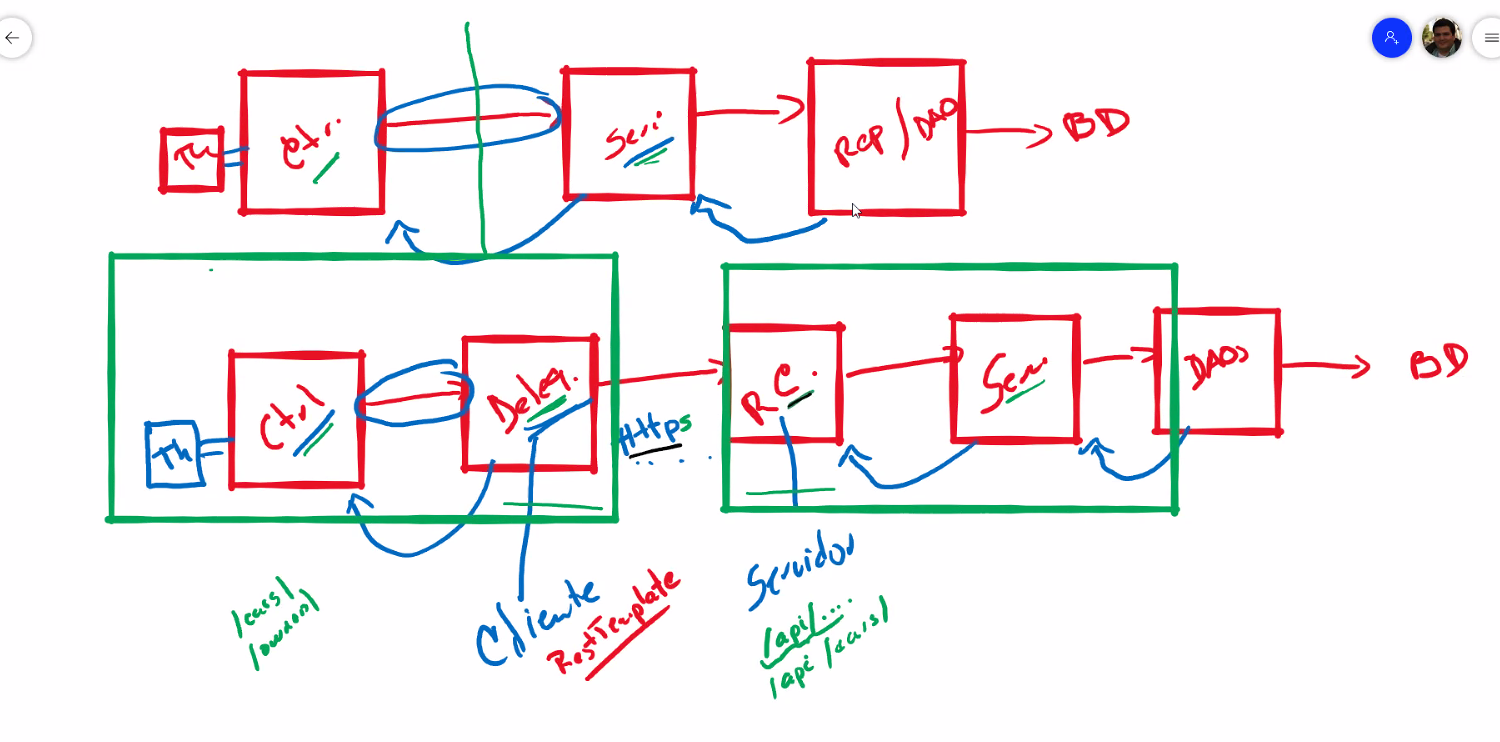 Th
Ctr.
Serv
Rep/DAO
BD
Th
Ctrl
Deleg.
Https
RC.
Serv
DAOs
BD
/cars/
/owners/
Cliente
RestTemplate
Servidor
/api/...
/api/cars/